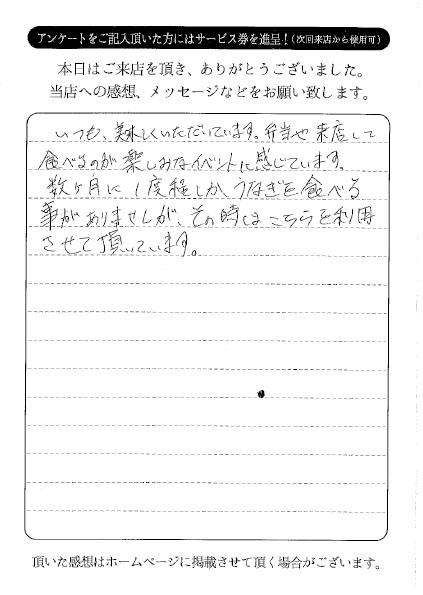 アンケートをご記入頂いた方にはサービス券を進呈!(次回来店から使用可)
本日はご来店を頂き、ありがとうございました。
当店への感想、メッセージなどをお願い致します。
いつも、美味しくいただいています。弁当や来店して
食べるのが楽しみなイベントに感じています。
数ヶ月に1度程しかうなぎを食べる
事がありませしが、その時はこちらを利用
させて頂いています。
頂いた感想はホームページに掲載させて頂く場合がございます。